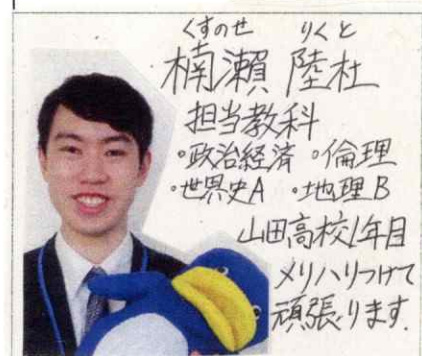 くすのせ りくと
楠瀬 陸杜
担当教科
・政治経済 ・倫理
・世界史A ・地理B
山田高校1年目
メリハリつけて
頑張ります.